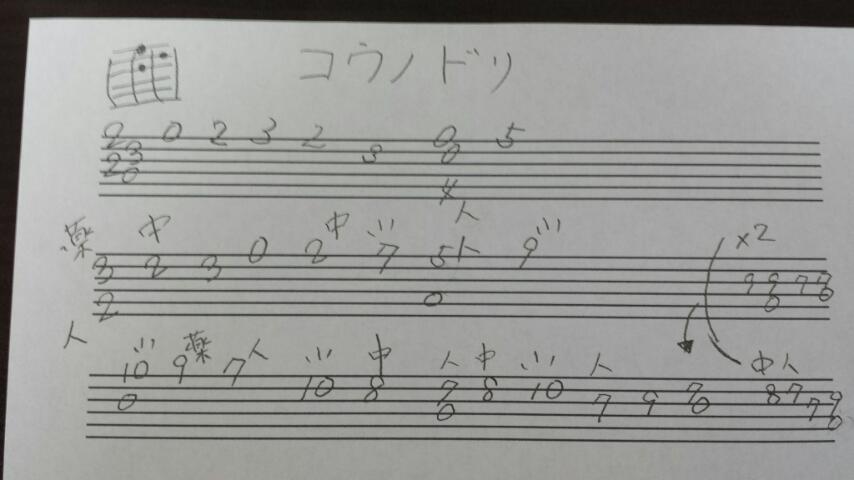 コウノドリ
2 0 2 3 2 0 5
3 3 0
2
0 4
人
薬 中 中 小 小 ×2
3 2 3 0 2 7 5人 9
2 0
人 小 薬 人 小 中 人 中 小 人 中人
10 9 7 10 8 7 8 10 7 9 7 8 7 7 9
0 0 0 0